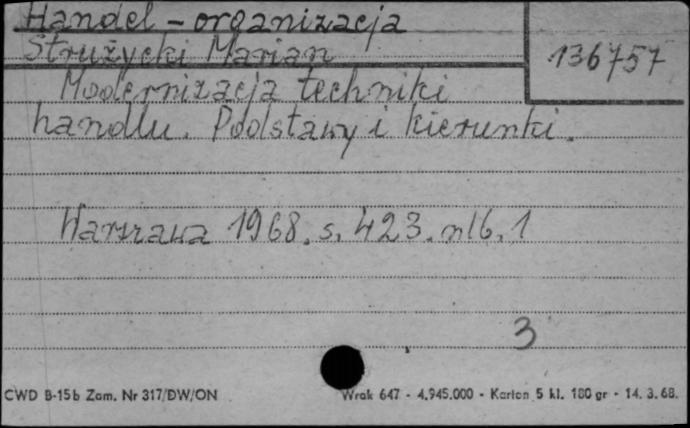 Handel - organizacja
Strużycki Marian
136757
Modernizacja techniki
handlu. Podstawy i kierunki.
Warszawa 1968. s. 423. nlb. 1
3
CWD B-15b Zam. Nr 317/DW/ON
Wrak 647 - 4.945.000 - Karton 5 kl. 180 gr - 14. 3. 68.